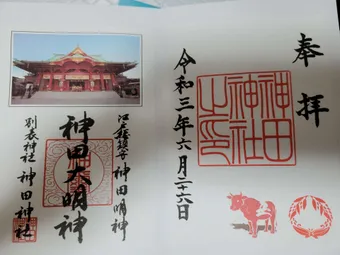 奉拝
神田
神社
之印
令和三年六月二十六日
江戸總鎮守 神田明神
神田大明神
別表神社 神田神社